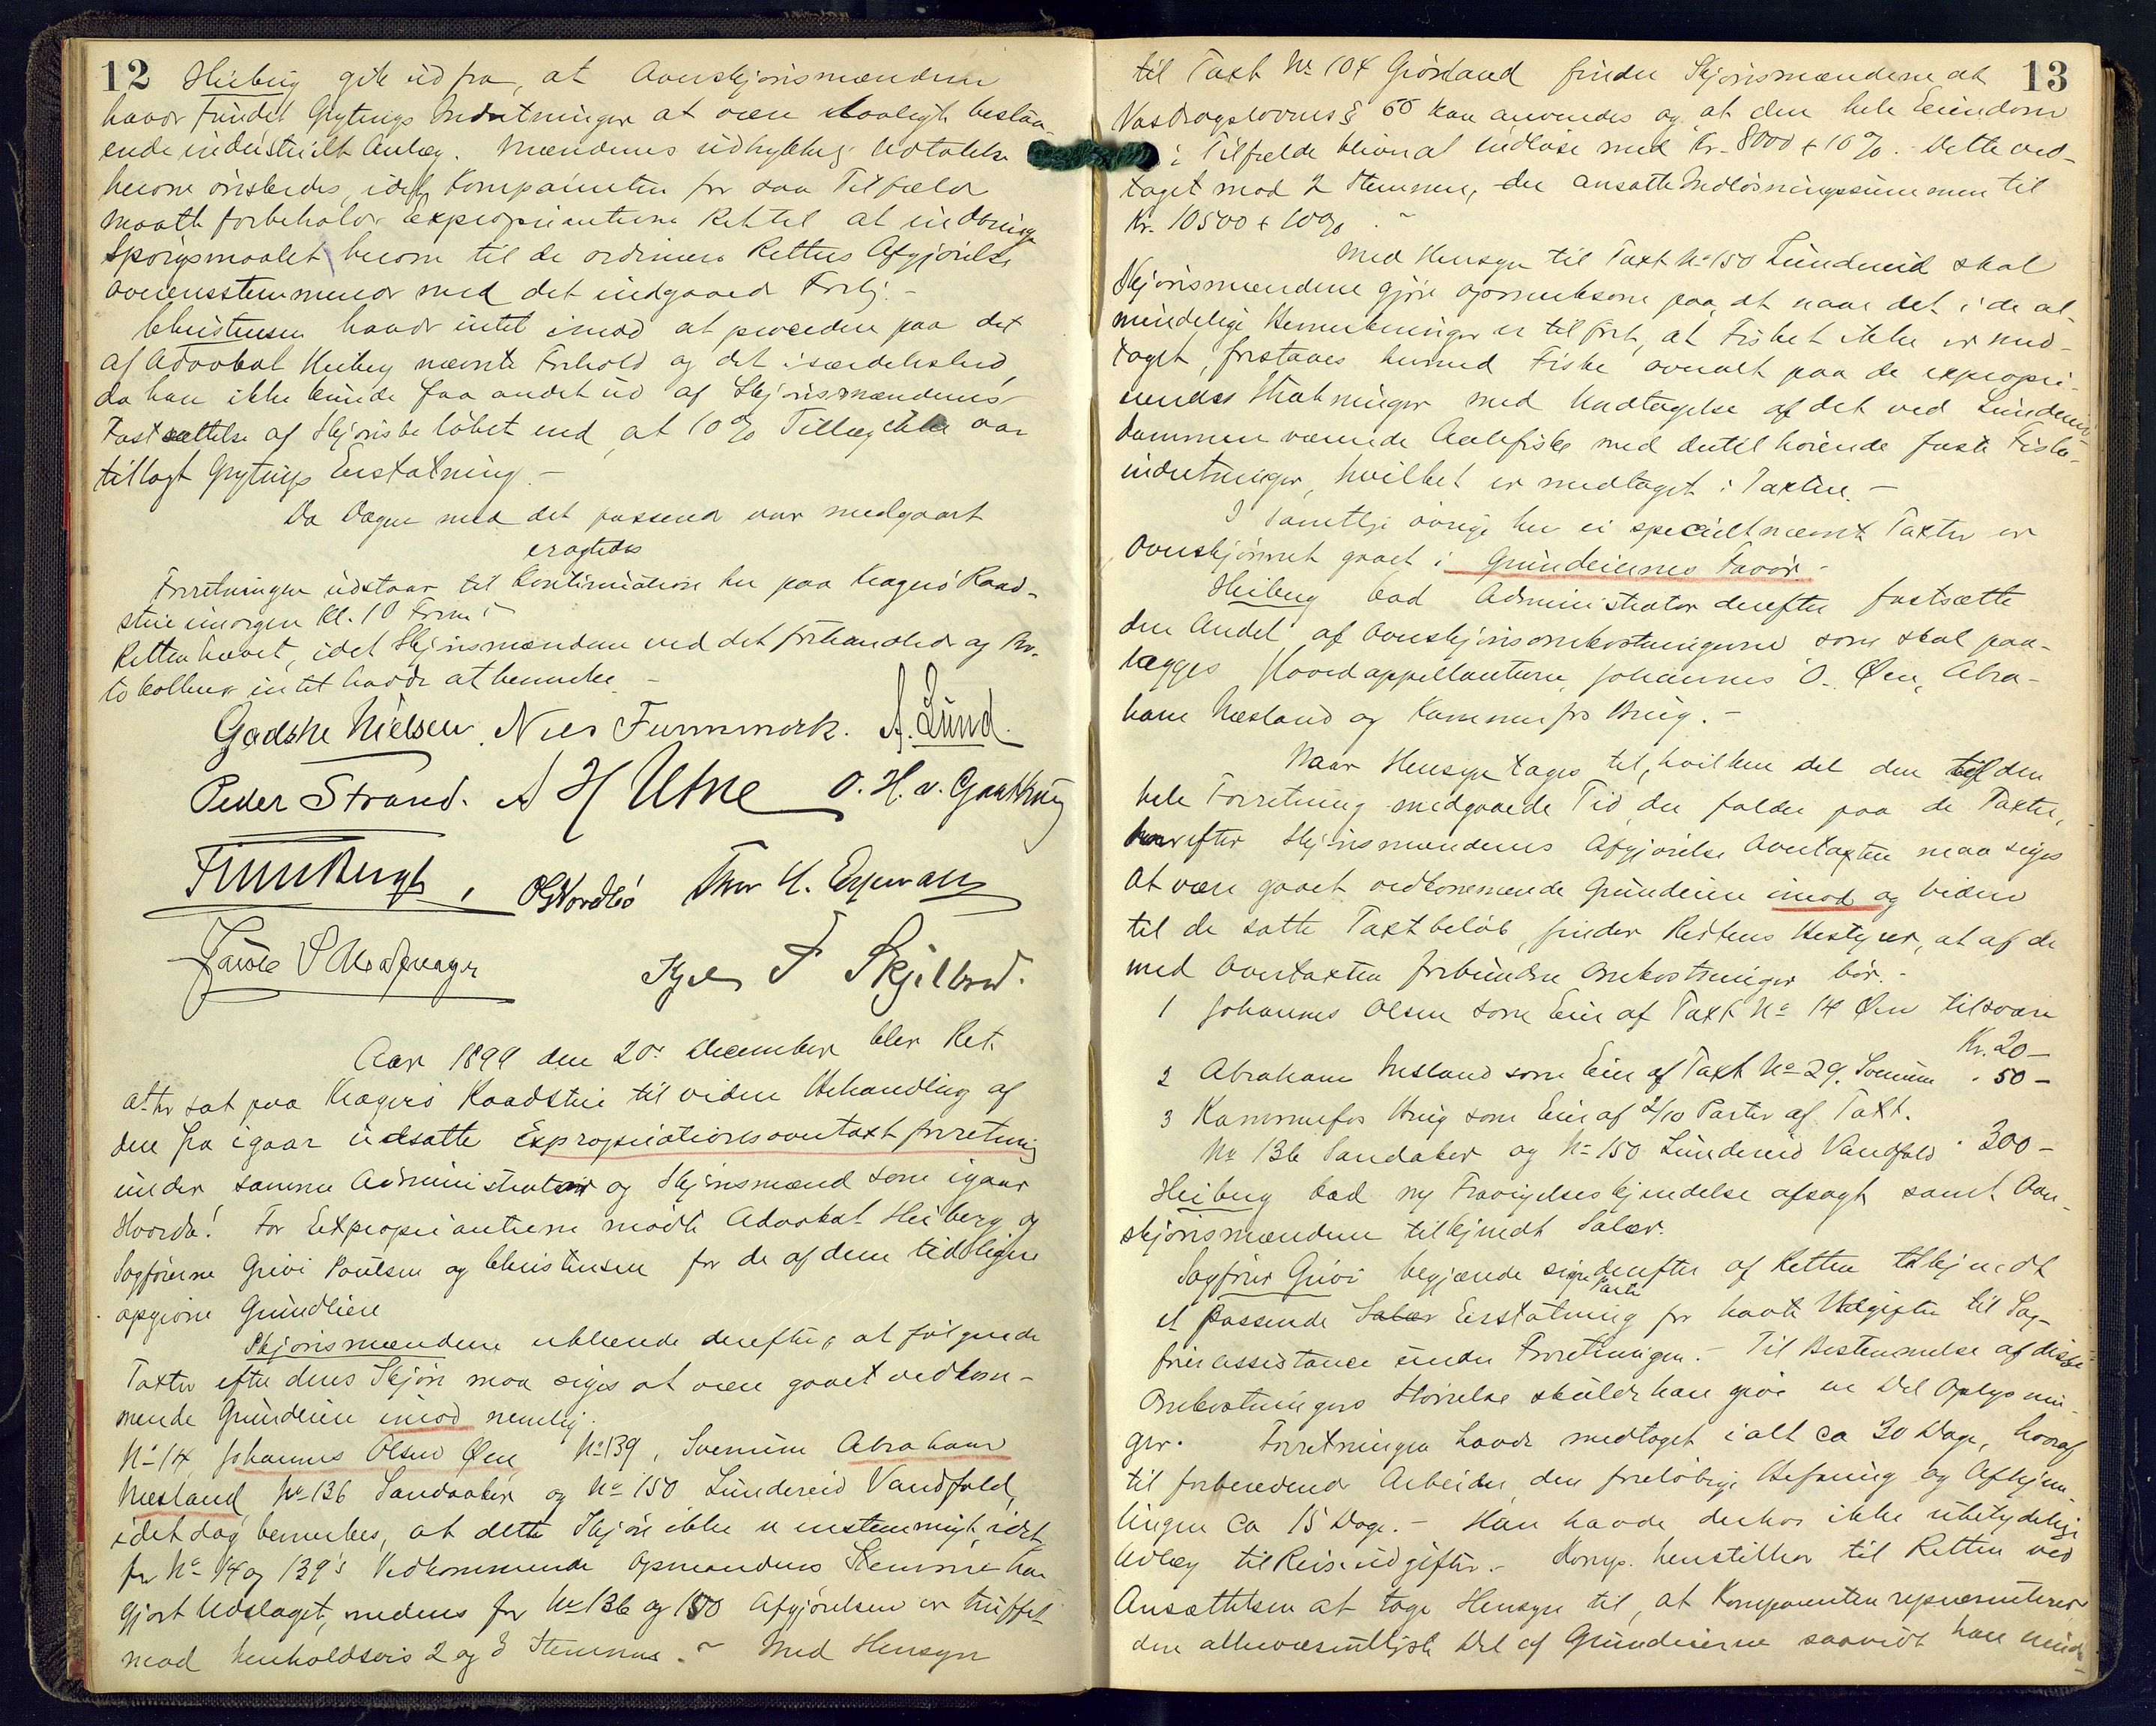 12
Heiberg gik ud fra, at Overskjønsmændene
havde fundet Grytings Indretninger at være lovligt bestaa-
ende industrielt Anlæg. Mændenes udtrykkelig Udtalelse
herom ønskedes, idet Komparenten for saa Tilfælde
maatte forbeholde Expropriantene Ret til at indbringe
Spørgsmaalet herom til de ordinære Retters Afgjørelse
overensstemmende med det indgaaede Forlig. -
Christensen havde intet imod at procedere paa det
af Advokat Heiberg nævnte Forhold og det i særdeleshed,
da han ikke kunde faa andet ud af Skjønsmændenes
Fastsættelse af Skjønsbeløbet end at 10 % Tillæg ikke var
tillagt Grytings Erstatning. -
Da Dagen med det passerede var medgaaet
eragtedes
Forretningen udstaar til Kontinuation her paa Kragerø Raad-
stue imorgen Kl. 10 Form.
Retten hævet, idet Skjønsmændene ved det forhandlede og Pro-
tokollen intet havde at bemerke. -
Gadske Nielsen. Nils Furumork. A. Lund.
Peder Strand. A H Utne O. H. v.
Finn Bergh, O Nordbø Thor H.
Jacob S
Kjel F Skjelbred.
Aar 1899 den 20de December blev Ret-
atter sat paa Kragerø Raadstue til videre Behandling af
den fra igaar udsatte Expropriationsovertaxtforretning
under samme Administrator og Skjønsmænd som igaar
Hvorda! For Exproprianterne mødte Advokat Heiberg og
Sagførerne Grivi Poulsen og Christensen for de af dem tidligere
opgivne Grundeiere
Skjønsmændene erklærede derefter, at følgende
Taxter efter deres Skjøn maa siges at være gaaet vedkom-
mende Grundeiere imod nemlig:
No 14 Johannes Olsen Øen, No 139, Svenum Abraham
Næsland No 136 Sandaaker og No 150 Lundereid Vandfald,
idet dog bemerkes, at dette Skjøn ikke er enstemmigt, idet
for No 14 og 139's Vedkommende Opmandens Stemme har
gjort Udslaget, medens for No 136 og 150 Afgjørelsen er truffet
mod henholdsvis 2 og 3 Stemmer. ~ Med Hensyn
13
til Taxt No 104 Grønland finder Skjønsmændene at
Vasdragslovens § 55 kan anvendes og at den hele Eiendom
i Tilfælde bliver at indløse med Kr. 8000 + 10 %. Dette ved-
taget mod 2 Stemmer, der ansatte Indløsningssummen til
Kr. 10500 + 10 %. ~
Med Hensyn til Taxt No 150 Lundereid skal
Skjønsmændene gjøre opmerksom paa, at naar det i de al-
mindelige Bemerkninger er tilført, at Fisket ikke er med-
taget, forstaaes herved Fiske overalt paa de expropri-
erede Strækninger med Undtagelse af det ved Lundereid-
dammen værende Aalefiske med dertil hørende faste Fiske-
indretninger, hvilket er medtaget i Taxten. -
I samtlige øvrige her ei specielt nævnte Taxter er
Overskjønnet gaaet i Grundeiernes Favør. -
Heiberg bad Administrator derefter fastsætte
den Andel af Overskjønsomkostningerne som skal paa-
lægges Hovedappellanterne Johannes O. Øen, Abra-
ham Næsland og Kammerfos Brug. -
Naar Hensyn tages til, hvilken del den til den
hele Forretning medgaaede Tid, der falder paa de Taxter,
hvorefter Skjønsmændenes Afgjørelse Overtaxten maa siges
at være gaaet vedkommende Grundeiere imod og videre
til de satte Taxtbeløb, finder Rettens Bestyrer, at af de
med Overtaxten forbundne Omkostninger bør. -
1 Johannes Olsen som Eier af Taxt No 14 Øen tilsvare
Kr. 20 -
2 Abraham Næsland som Eier af Taxt No 29. Svenum " 50 -
3 Kammerfos Brug som Eier af 2/10 Parter af Taxt.
No 136 Sandaker og No 150 Lundereid Vandfald " 300 -
Heiberg bad ny Fravigelseskjendelse afsagt samt Over-
skjønsmændene tilkjendt Salær.
Sagfører Grivi begjærede sine derefter af Retten tilkjendt
Parter
et passende Salær Erstatning for havte Udgifter til Sag-
førerassistance under Forretningen. - Til Bestemmelse af disse
Omkostningers Størrelse skulde han give en Del Oplysnin-
ger. Forretningen havde medtaget ialt ca 30 Dage, hvoraf
til forberedende Arbeider, den foreløbige Befaring og Afhjem-
lingen ca 15 Dage. - Han havde derhos ikke ubetydelige
Udlæg til Reiseudgifter. - Komp. henstiller til Retten ved
Ansættelsen at tage Hensyn til, at Komparenten repræsenterer
den alleværentligste Del af Grundeierne saavidt han